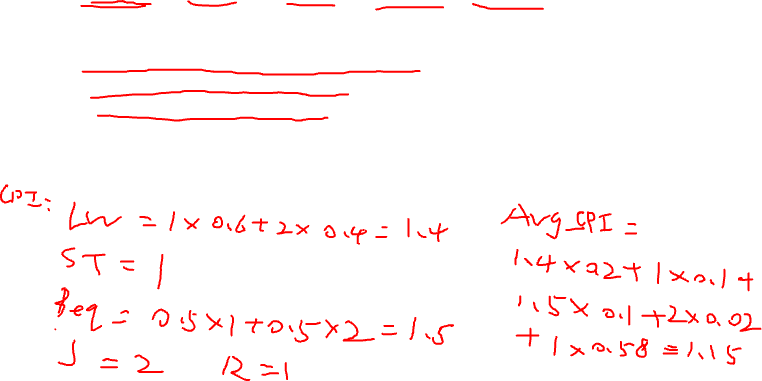 CPI:
LW = 1 × 0.6 + 2 × 0.4 = 1.4
ST = 1
Beq = 0.5 × 1 + 0.5 × 2 = 1.5
J = 2 R = 1
Avg CPI =
1.4 × 0.2 + 1 × 0.1 +
1.5 × 0.1 + 2 × 0.02
+ 1 × 0.58 = 1.15